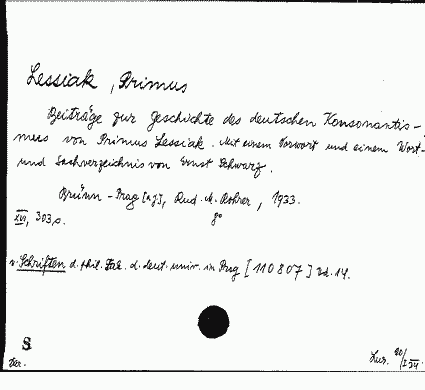 Lessiak, Primus
Beiträge zur Geschichte des deutschen Konsonantis-
mus von Primus Lessiak. Mit einem Vorwort und einem Wort-
und Sachverzeichnis von Ernst Schwarz.
Brünn - Prag [u.], Rud. M. Rohrer, 1933.
XVI, 303 s. 8°
v. Schriften d. phil. Fak. d. deut. univ. in Prag [110807] Bd. 14.
S
Ver.
Lur. 20/I 34.